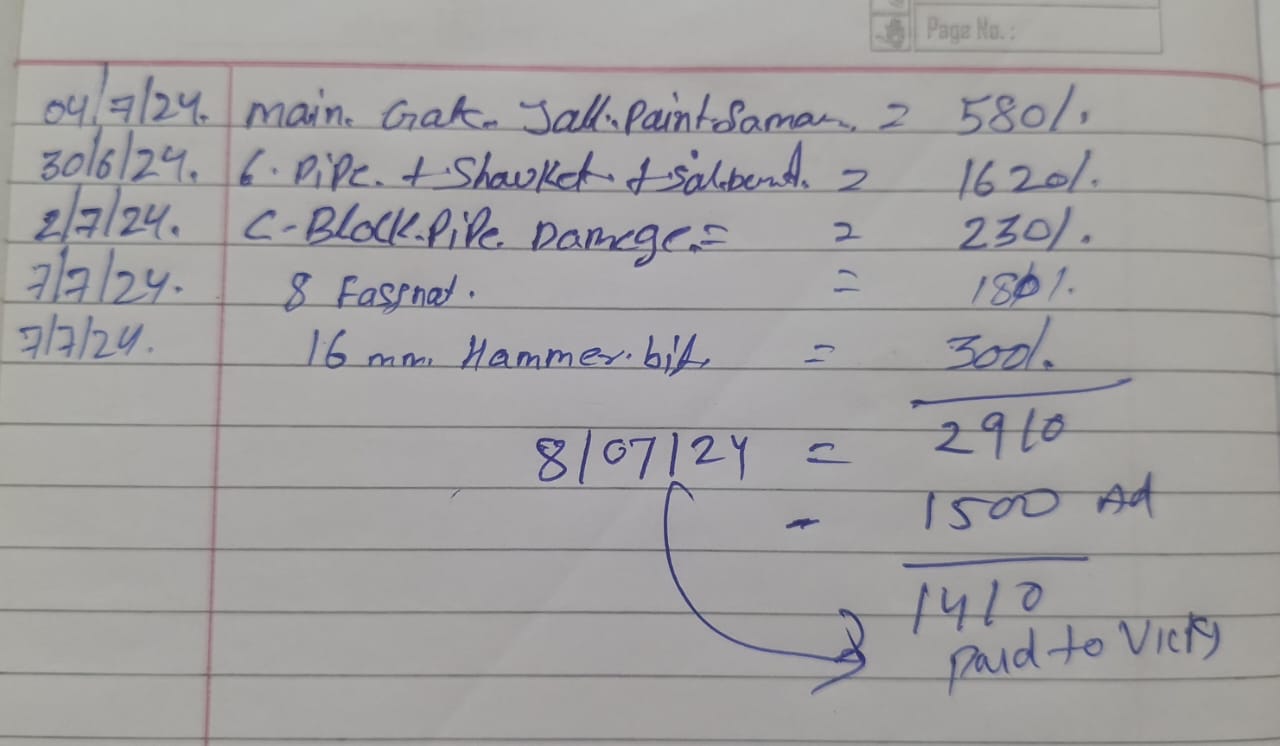 Page No. :
04/7/24. main. Gate. Jall. Paint. Saman. = 580/.
30/6/24. 6. Pipe. + Shawket + Salbent. = 1620/.
2/7/24. C-Block. Pipe. Damege. = = 230/.
7/7/24. 8 Fassnat. = 180/.
7/7/24. 16 mm. Hammer. bit. = 300/.
8/07/24 = 2910
- 1500 Ad
1410
paid to Vicky